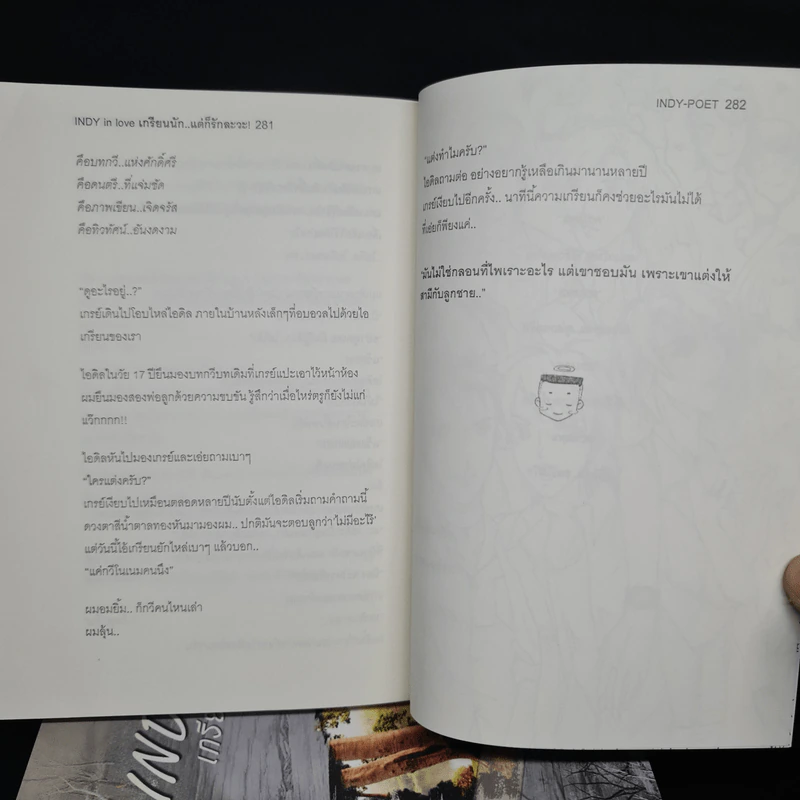 INDY in love เกรียนนัก..แต่ก็รักละวะ! 281
คือบทกวี..แห่งศักดิ์ศรี
คือดนตรี..ที่แจ่มชัด
คือภาพเขียน..เจิดจรัส
คือทิวทัศน์..อันงดงาม
"ดูอะไรอยู่..?"
เกรย์เดินไปโอบไหล่ไอดิล ภายในบ้านหลังเล็กๆที่อบอวลไปด้วยไอ
เกรียนของเรา
ไอดิลในวัย 17 ปียืนมองบทกวีบทเดิมที่เกรย์แปะเอาไว้หน้าห้อง
ผมยืนมองสองพ่อลูกด้วยความขบขัน รู้สึกว่าเมื่อไหร่ตรูก็ยังไม่แก่
แว๊กกกก!!
ไอดิลหันไปมองเกรย์และเอ่ยถามเบาๆ
"ใครแต่งครับ?"
เกรย์เงียบไปเหมือนตลอดหลายปีนับตั้งแต่ไอดิลเริ่มถามคำถามนี้
ดวงตาสีน้ำตาลทองหันมามองผม.. ปกติมันจะตอบลูกว่า'ไม่มีอะไร'
แต่วันนี้ไอ้เกรียนยักไหล่เบาๆ แล้วบอก..
"แค่กวีโนเนมคนนึง"
ผมอมยิ้ม.. ก็กวีคนไหนเล่า
ผมลุ้น..
INDY-POET 282
"แต่งทำไมครับ?"
ไอดิลถามต่อ อย่างอยากรู้เหลือเกินมานานหลายปี
เกรย์เงียบไปอีกครั้ง.. นาทีนี้ความเกรียนก็คงช่วยอะไรมันไม่ได้
ที่เอ่ยก็พียงแค่..
"มันไม่ใช่กลอนที่ไพเราะอะไร แต่เขาชอบมัน เพราะเขาแต่งให้
สามีกับลูกชาย.."